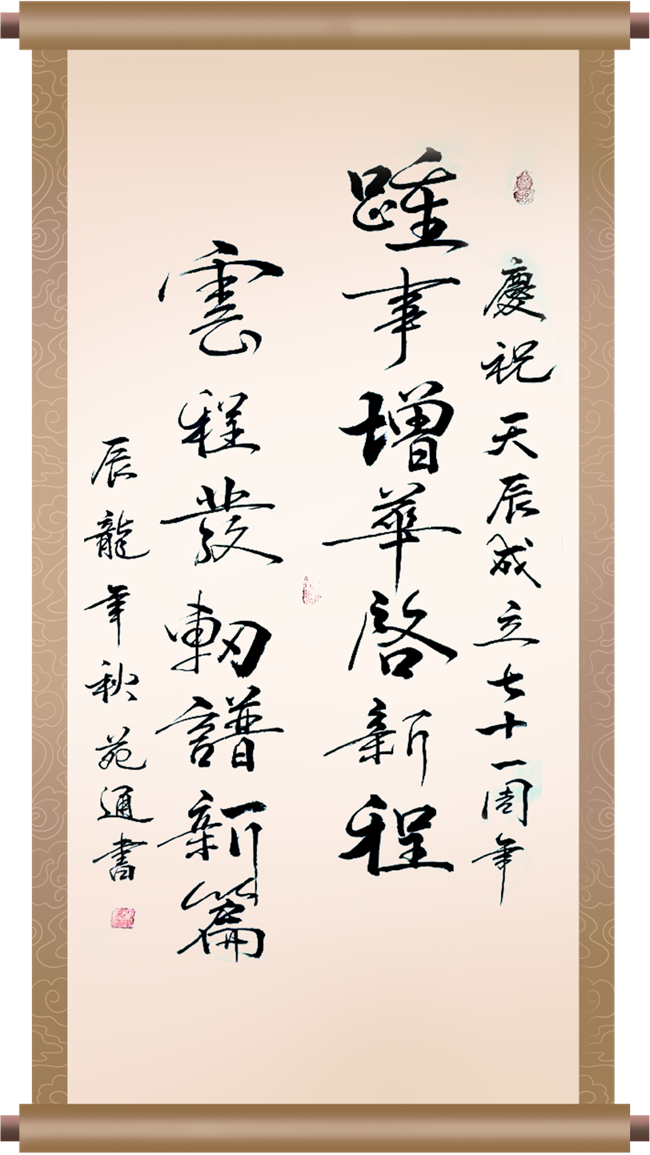 慶祝天辰成立七十一周年
踵事增華啓新程
雲程發軔譜新篇
辰龍年秋苑通書